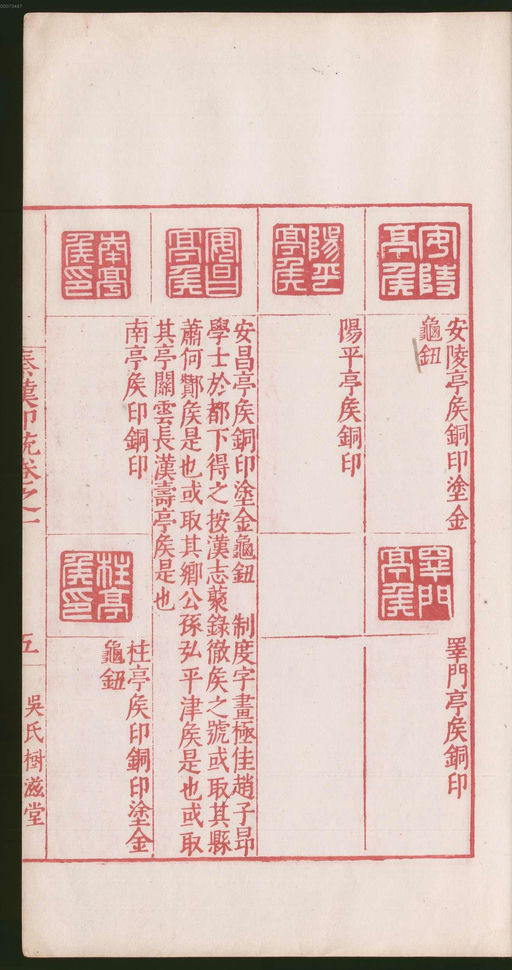 安陵亭侯
安陵亭矦銅印塗金
龜鈕
睪門亭侯
睪門亭矦銅印
陽平亭侯
陽平亭矦銅印
安昌亭侯
安昌亭矦銅印塗金龜鈕 制度字畫極佳趙子昂
學士於都下得之按漢志蘷錄徹矦之號或取其縣
蕭何酇矦是也或取其鄉公孫弘平津矦是也或取
其亭關雲長漢壽亭矦是也
南亭侯印
南亭矦印銅印
枉亭侯印
枉亭矦印銅印塗金
龜鈕
秦漢印統卷之一
五
吳氏樹滋堂
00073487